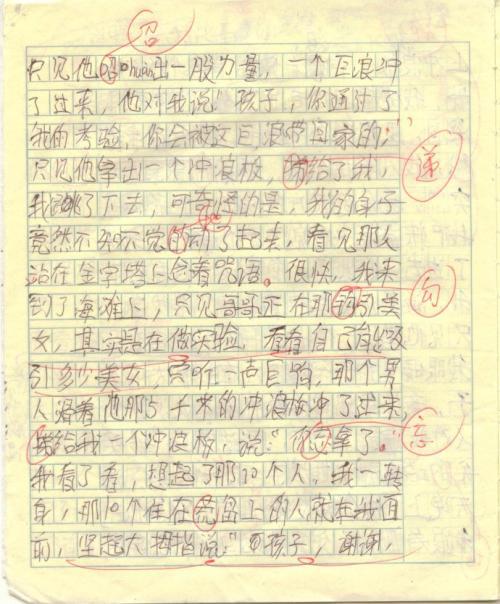 召
只见他召huàn出一股力量，一个巨浪冲
了过来，他对我说"孩子，你通过了
我的考验，你会被这巨浪带回家的。"
只见他拿出一个冲浪板，给了我，
递
我跳了下去，可奇怪的是，我的身子
竟然不知不觉的动了起去，看见那人
站在金字塔上念着咒语。很快，我来
到了海滩上，只见哥哥正在那钩引美
勾
女，其实是在做实验，看看自己能吸
引多少美女，只听一声巨响，那个男
人沿着他那5千米的冲浪板冲了过来，
给我一个冲浪板，说："你忘拿了。"
忘
我看了看，想起了那10个人，我一转
身，那10个住在荒岛上的人就在我面
前，竖起大拇指说："孩子，谢谢，